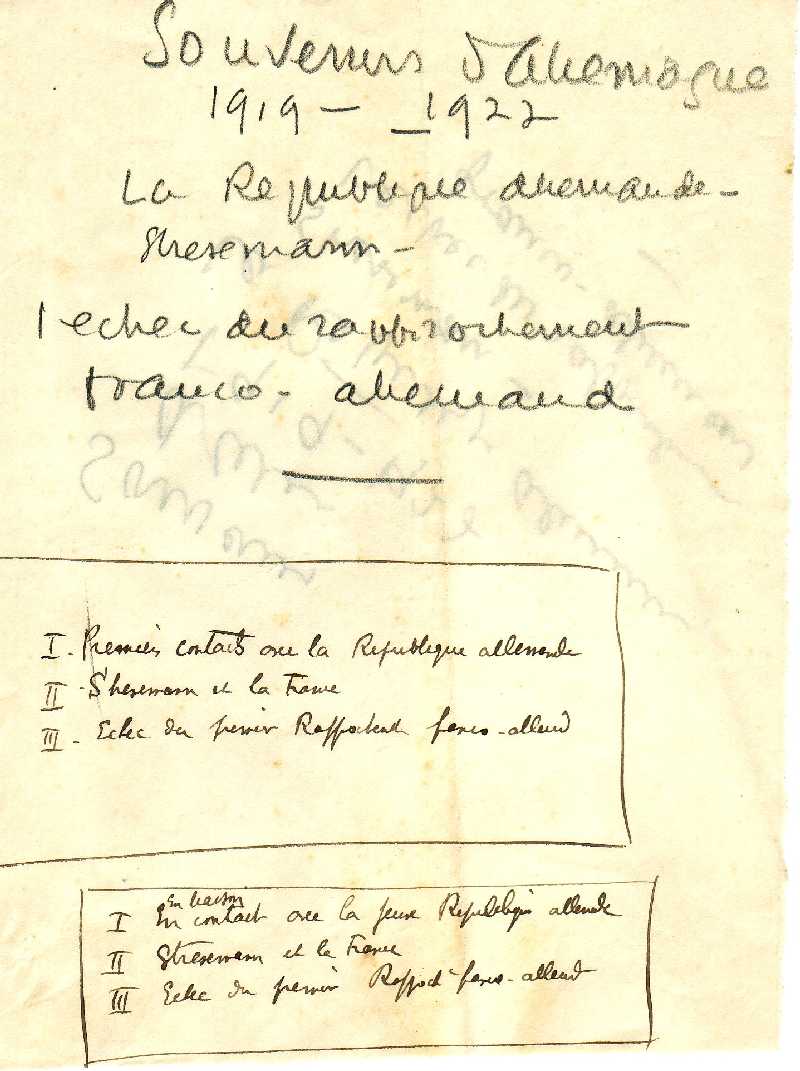 Souvenirs d'Allemagne
1919 - 1922
La Republique allemande -
Stresemann -
l echec du rapprochement
franco - allemand
I - Premiers contacts avec la Republique allemande
II - Stresemann et la France
III - Echec du premier Rapprochent franco-allemd
En liaison
I En contact avec la jeune Republiq allemde
II Stresemann et la France
III Echec du premier Rapproch franco-allemd